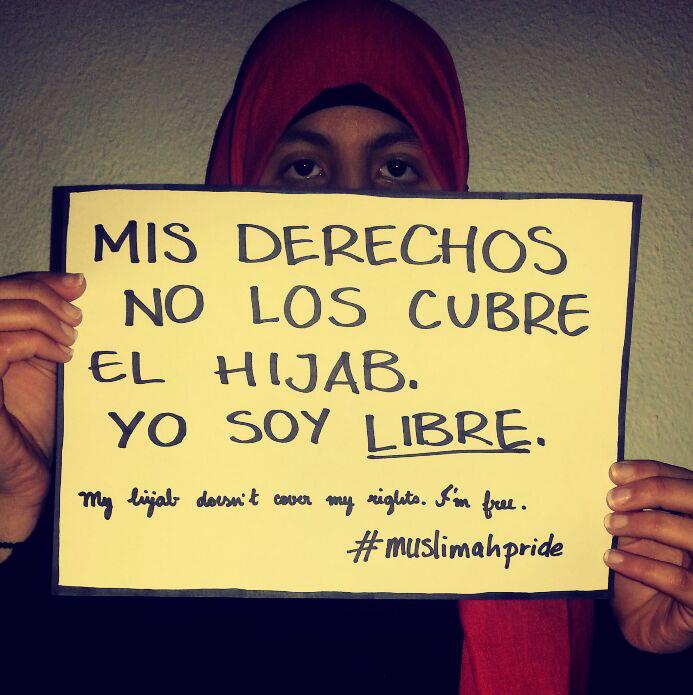 MIS DERECHOS
NO LOS CUBRE
EL HIJAB.
YO SOY LIBRE.
My hijab doesn't cover my rights. I'm free.
#muslimahpride